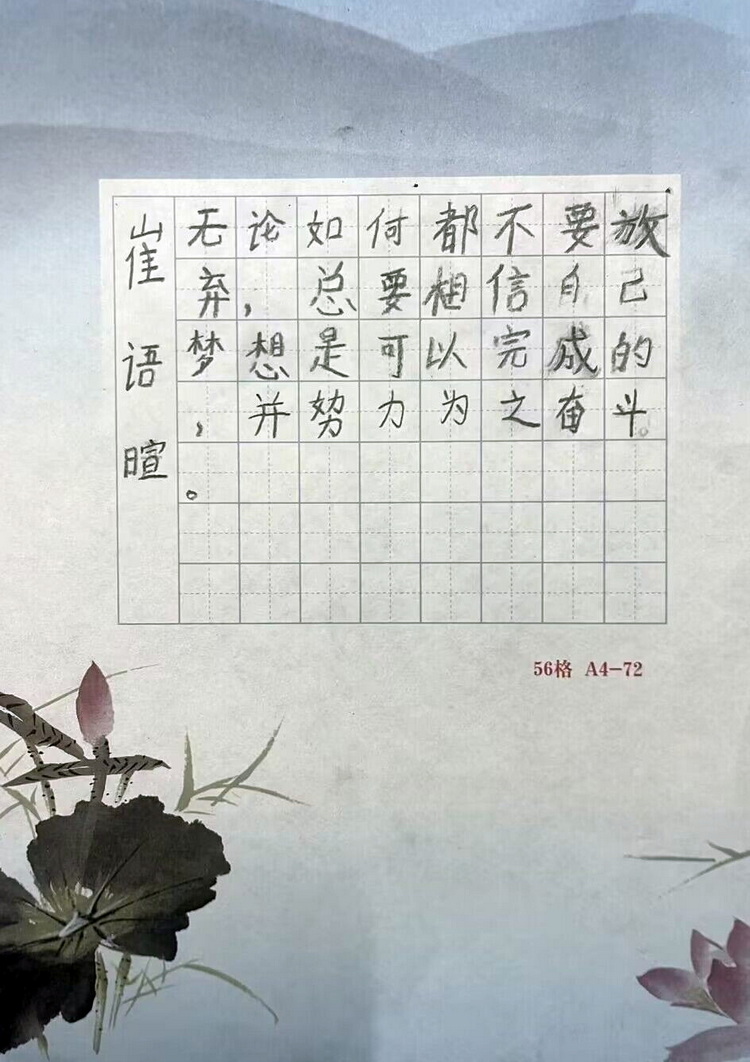 崔语暄
无论如何都不要放
弃，总要相信自己
梦想是可以完成的
，并努力为之奋斗。
。
56格 A4-72